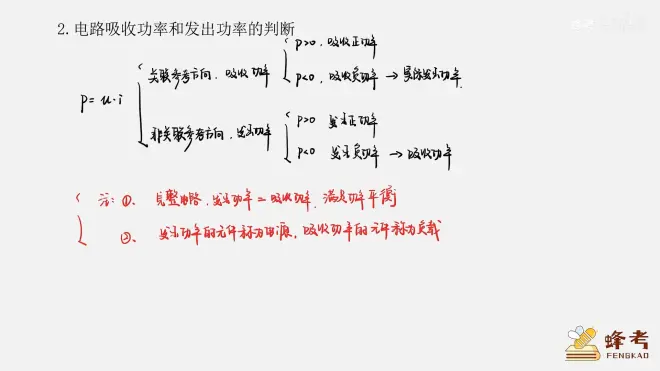 2. 电路吸收功率和发出功率的判断
p>0，吸收正功率
关联参考方向，吸收功率
p<0，吸收负功率 → 实际发出功率.
p = u·i
p>0 发出正功率
非关联参考方向，发出功率
p<0 发出负功率 → 吸收功率
注：①、完整电路，发出功率 = 吸收功率，满足功率平衡
②、发出功率的元件称为电源，吸收功率的元件称为负载
蜂考
FENGKAO